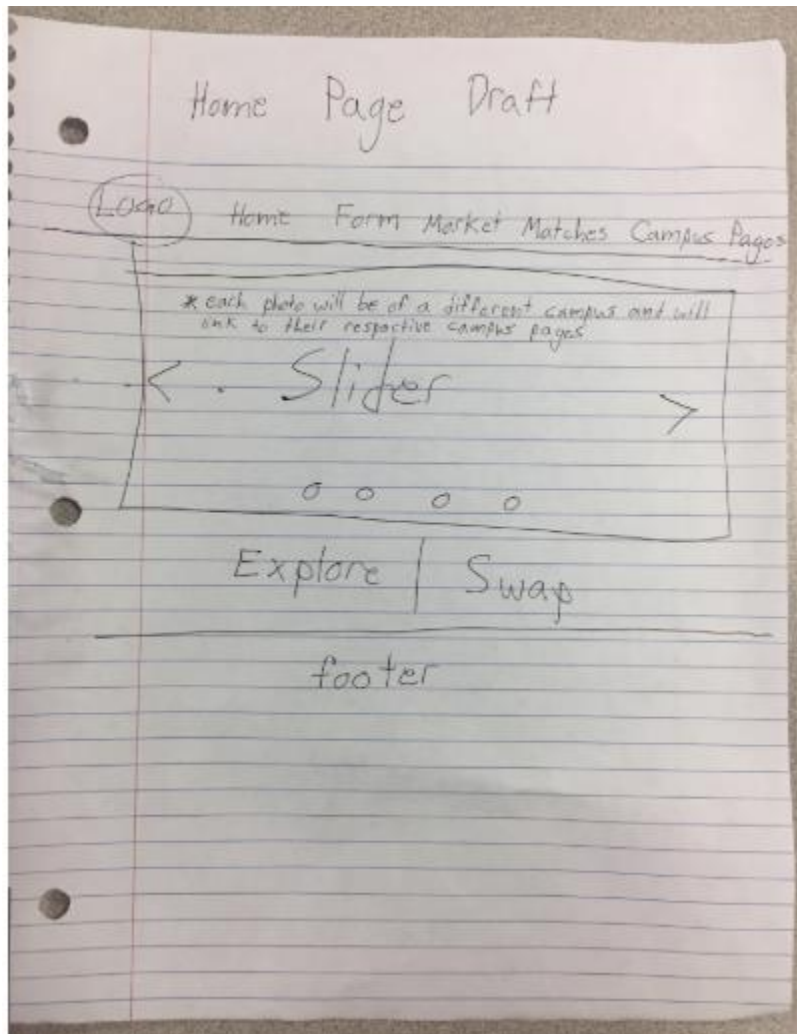 Home Page Draft
Logo Home Form Market Matches Campus Pages
* each photo will be of a different campus and will
link to their respective campus pages
< Slider >
Explore | Swap
footer